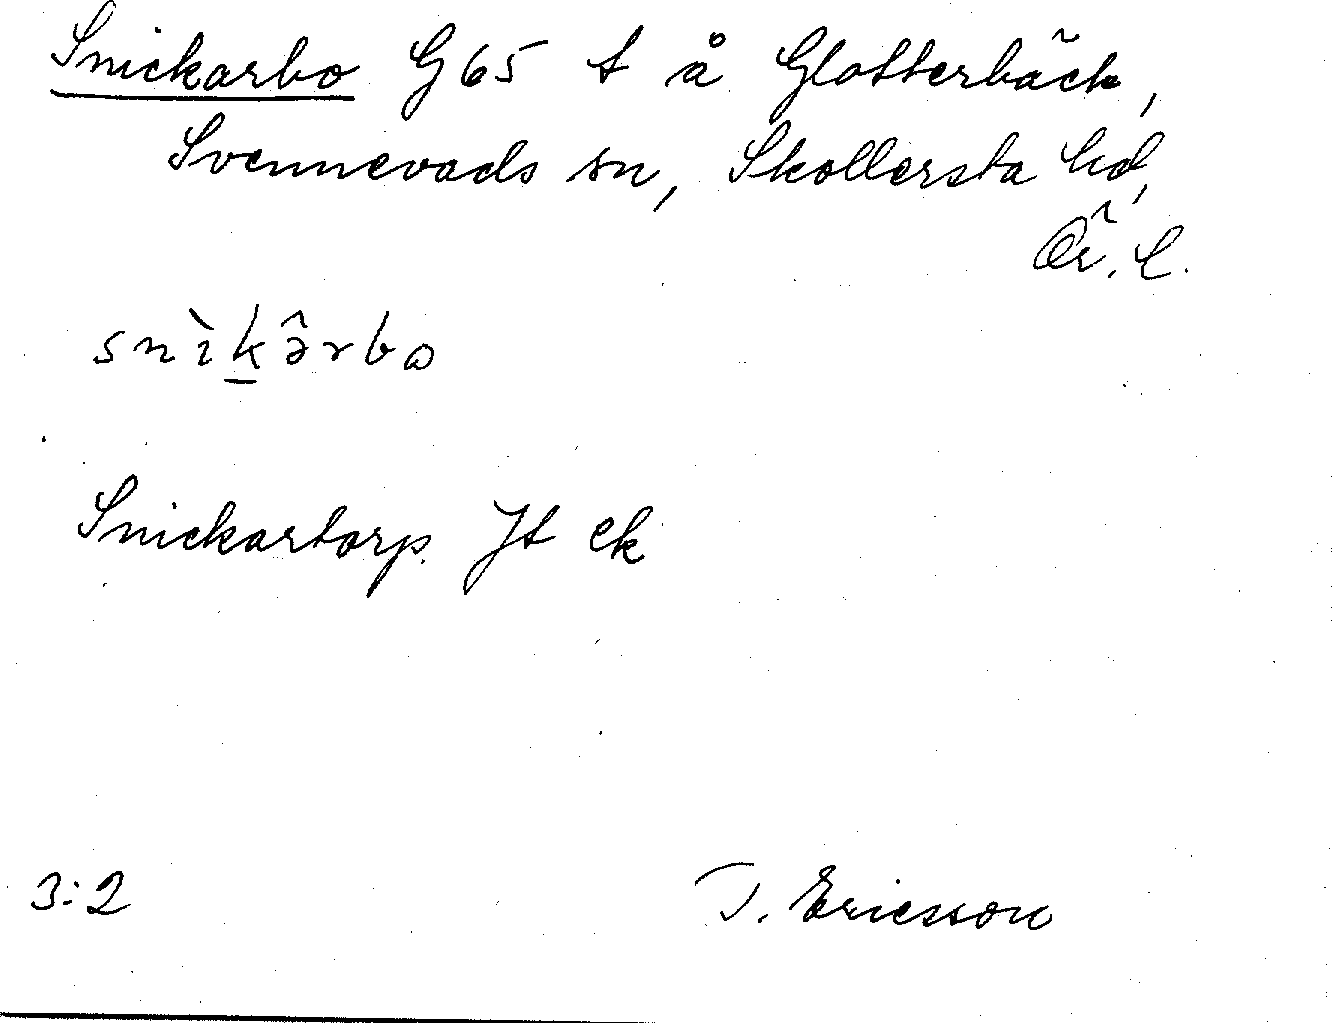 Snickarbo G65 t å Glotterbäck,
Svennevads sn, Skollersta hd,
Ör. l.
snìk̲ə̂rbo
Snickartorp Jt ek
3:2
T. Ericsson